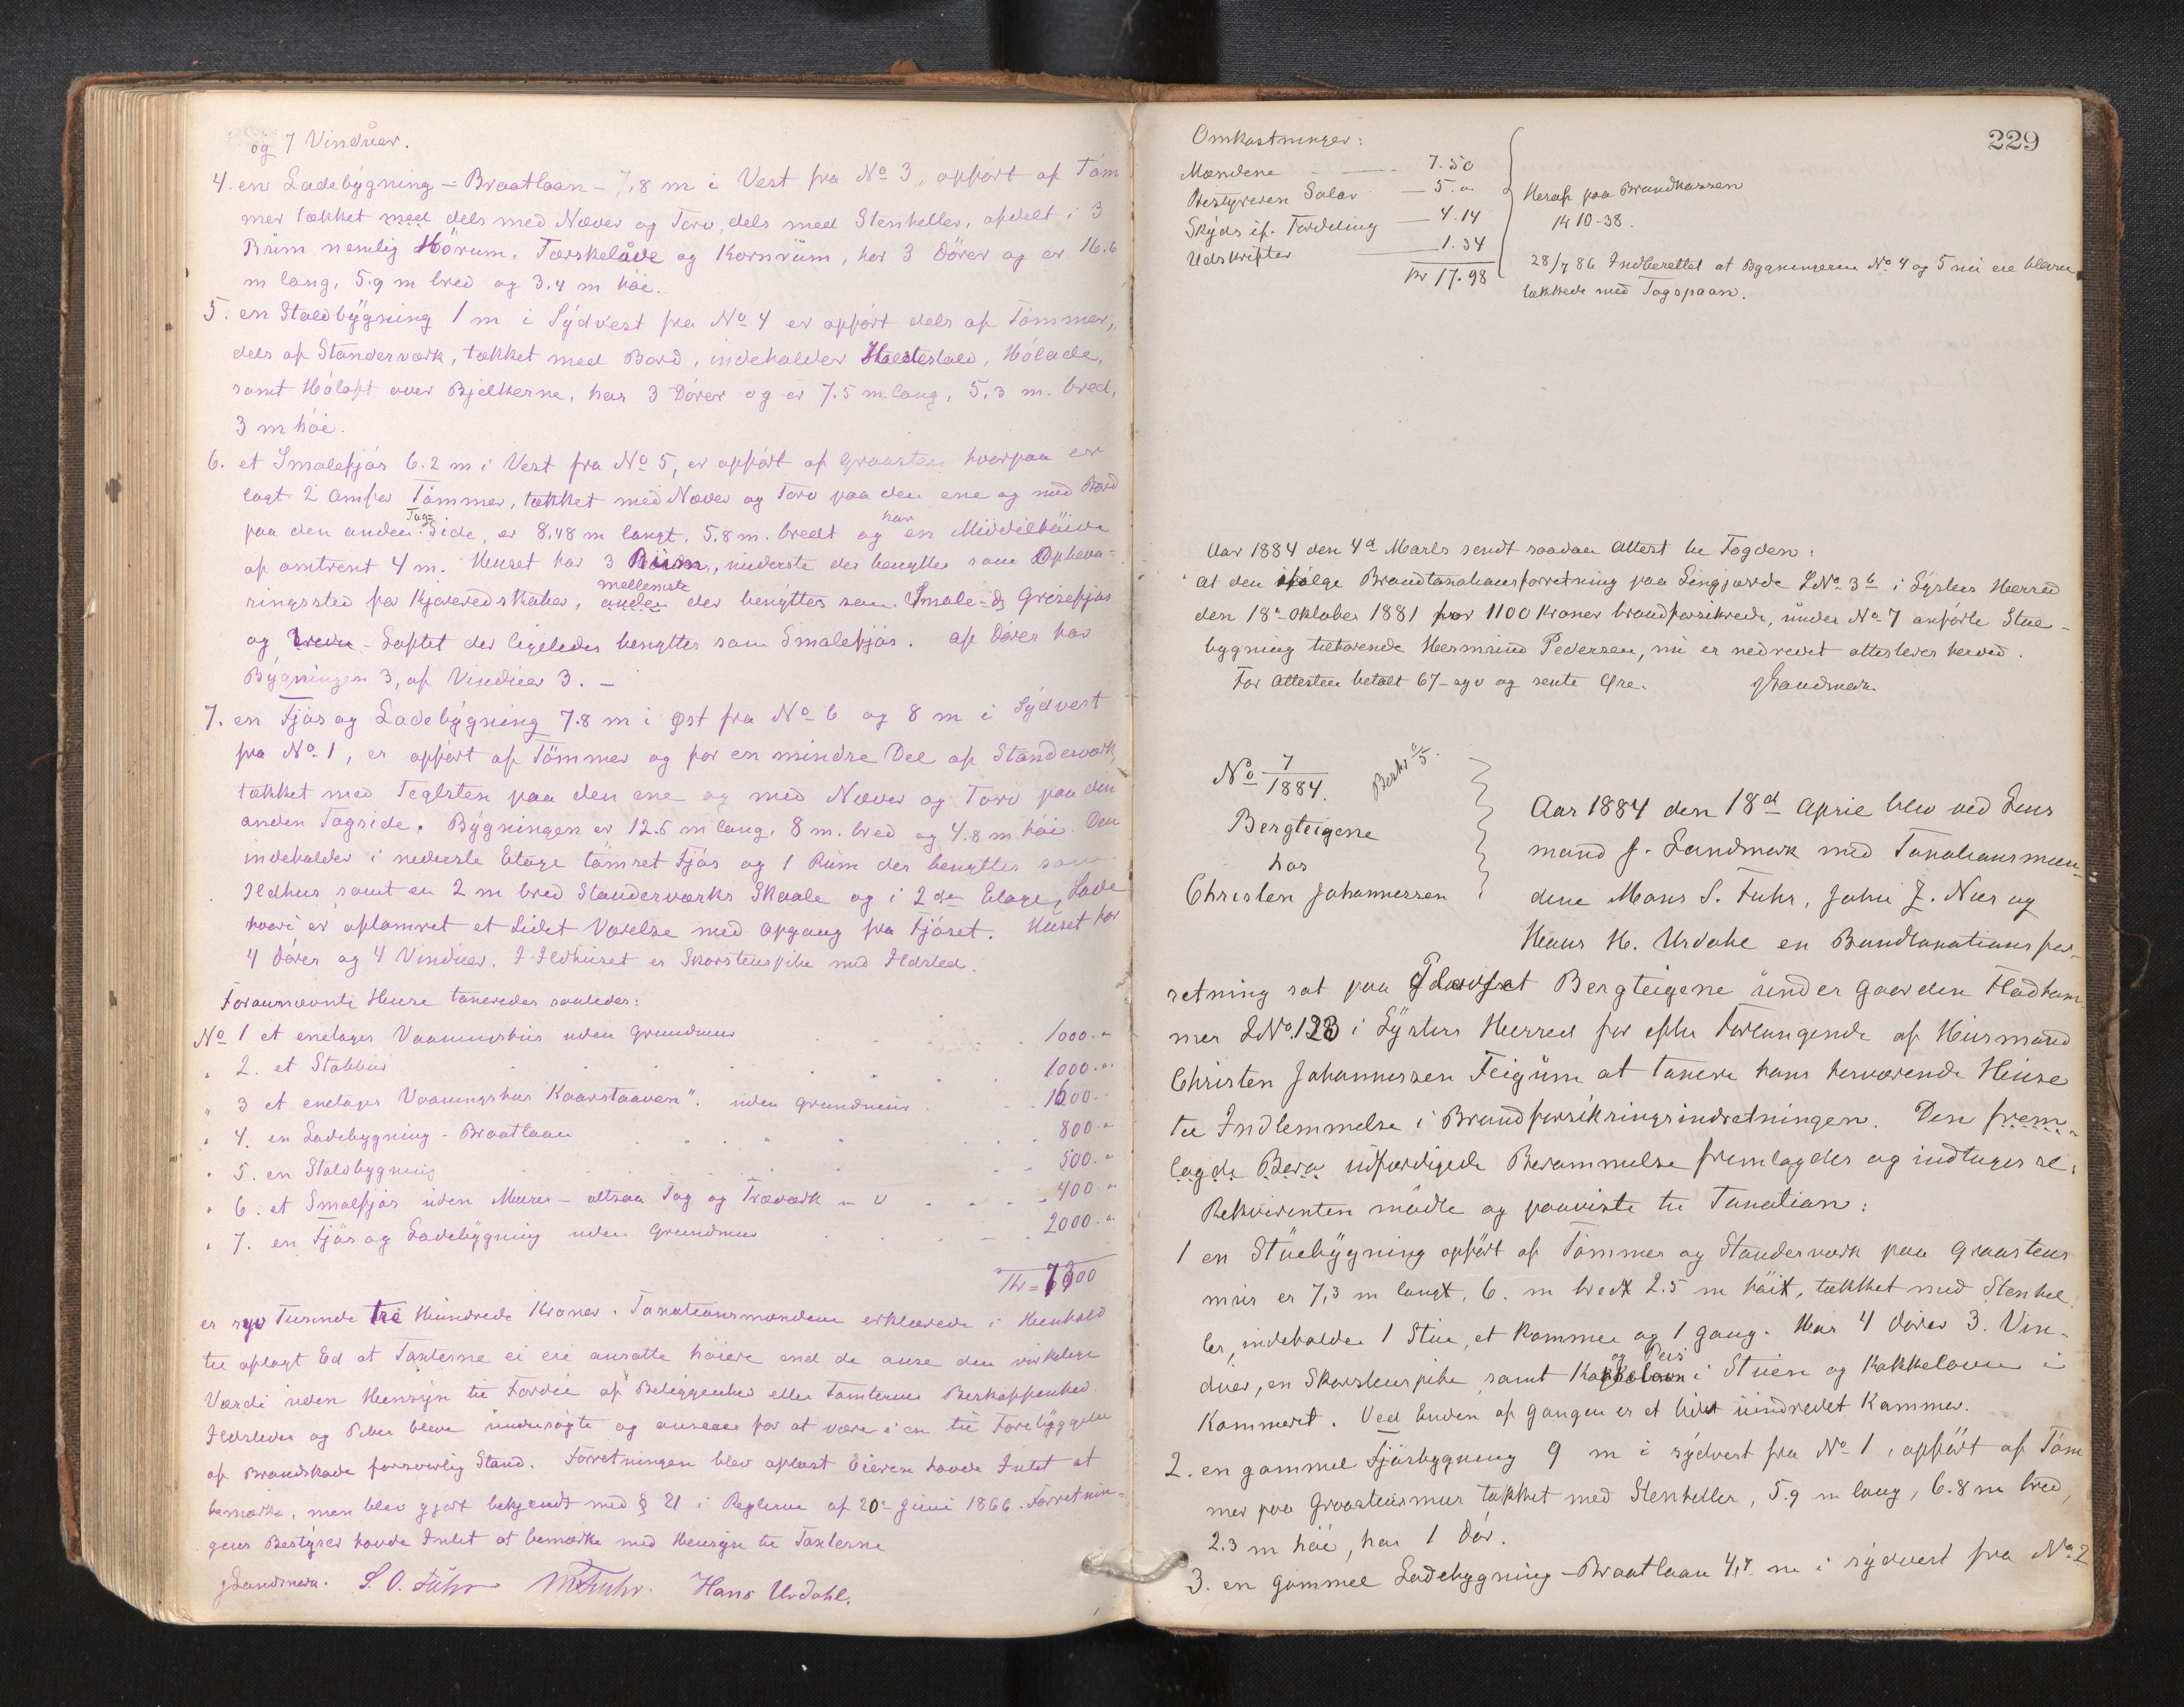 og 7 Vinduer.
4. en Ladebygning - Braatlaan - 7,8 m i Vest fra No 3, opført af Tøm
mer tækket med dels med Næver og Torv, dels med Stenheller, afdelt i 3
Rum nemlig Hørum, Tærskelåve og Kornrum, har 3 Dører og er 16.6
m lang, 5.9 m bred og 3.4 m høi.
5. en Staldbygning 1 m i Sydvest fra No 4 er opført dels af Tømmer,
dels af Standerværk, tækket med Bord, indeholder Hestestald, Hølade,
samt Høloft over Bjelkerne, har 3 Dører og er 7.5 m lang, 5.3 m. bred,
3 m høi.
6. et Smalefjøs 6.2 m i Vest fra No 5, er opført af Graasten hvorpaa er
lagt 2 Omfar Tømmer, tækket med Næver og Torv paa den ene og med Bord
paa den anden Tag=Side, er 8,48 m langt, 5.8 m. bredt og har en Middelhøide
af omtrent 4 m. Huset har 3 Rum, nederste der benyttes som Opbeva=
ringssted for Kjøreredskaber, mellemste der benyttes som Smale- og Grisefjøs
og tredie - Loftet der ligeledes benyttes som Smalefjøs. af Dører har
Bygningen 3, af Vinduer 3. -
7. en Fjøs og Ladebygning 7.8 m i Øst fra No 6 og 8 m i Sydvest
fra No 1, er opført af Tømmer og for en mindre Del af Standerværk,
tækket med Teglsten paa den ene og med Næver og Torv paa den
anden Tagside. Bygningen er 12.5 m lang, 8 m. bred og 4.8 m høi. Den
indeholder i nederste Etage tømret Fjøs og 1 Rum der benyttes som
Ildhus samt en 2 m bred Standerværks Skaale og i 2de Etage, Lade
hvori er optømret et Lidet Værelse med Opgang fra Fjøset. Huset har
4 Dører og 4 Vinduer. I Ildhuset er Skorstenspibe med Ildsted.
Forannævnte Huse taxeredes saaledes:
No 1 et enetages Vaaningshus uden Grundmur 1000.-
" 2. et Stabbur 1000.-
" 3 et enetages Vaaningshus Kaarstaaven". uden Grundmur 1600.-
" 4. en Ladebygning - Braatlaan 800.-
" 5. en Staldbygning 500.-
" 6. et Smalfjøs uden Murer - altsaa Tag og Træværk 400.-
" 7. en Fjøs og Ladebygning uden Grundmur 2000.-
Kr = 7300
er syv Tusinde tre Hundrede Kroner. Taxationsmændene erklærede i Henhold
til aflagt Ed at Taxterne ei ere ansatte høiere end de anse den virkelige
Værdi uden Hensyn til Fordele af Beliggenhed eller Tomternes Beskaffenhed.
Ildsteder og Piber bleve undersøgte og ansees for at være i en til Forebyggelse
af Brandskade forsvarlig Stand. Forretningen blev oplæst Eieren havde Intet at
bemærke, men blev gjort bekjendt med § 21 i Reglerne af 20de Juni 1866. Forretnin-
gens Bestyrer havde Intet at bemærke med Hensyn til Taxterne
J Landmark. S. O. Fuhr M Fuhr. Hans Urdahl.
229
Omkostninger:
Mændene 7.50
Bestyreren Salær 5.-
Skyds if. Fordeling 4.14
Udskrifter 1.34
Kr 17.98
Heraf paa Brandkassen
Kr 10-38.
28/7 86 Indberettet at Bygningerne No 4 og 5 nu ere blevne
tækkede med Tagspaan.
Aar 1884 den 4de Marts sendt saadan Attest til Fogden:
at den ifølge Brandtaxationsforretning paa Lingjærde LNo 3b i Lysters Herred
den 18de Oktober 1881 for 1100 Kroner brandforsikrede, under No 7 anførte Stue-
bygning tilhørende Hermund Pedersen, nu er nedrevet attesteres herved.
For Attesten betalt 67 - syv og sexti Øre. J Landmark.
No 7/1884.
Bergteigene
hos
Christen Johannessen
Aar 1884 den 18de April blev ved Lens
mand J. Landmark med Taxationsmæn-
dene Mons S. Fuhr, John J. Næs og
Hans H. Urdahl en Brandtaxationsfor-
retning sat paa Pladset Bergteigene under Gaarden Fladham
mer LNo 123 i Lysters Herred for efter Forlangende af Husmand
Christen Johannessen Feigum at taxere hans herværende Huse
til Indlemmelse i Brandforsikringsindretningen. Den frem-
lagde Bera udfærdigede Berammelse fremlagdes og indtages sl.
Rekvirenten mødte og paaviste til Taxation:
1 en Stuebygning opført af Tømmer og Standerværk paa Graastens
mur er 7,3 m langt, 6. m bredt 2.5 m høit, tækket med Stenhel
ler, indeholder 1 Stue, et Kammer og 1 Gang. Har 4 Dører 3. Vin-
duer, en Skorstenspibe samt Kakkelovn og Peis i Stuen og Kakkelovn i
Kammeret. Ved Enden af Gangen er et lidet uindredet Kammer.
2. en gammel Fjøsbygning 9 m i sydvest fra No 1, opført af Tøm
mer paa Graastensmur tækket med Stenheller, 5.9 m lang, 6.8 m bred,
2.3 m høi, har 1 Dør.
3. en gammel Ladebygning - Braatlaan 4,7 m i sydvest fra No 2